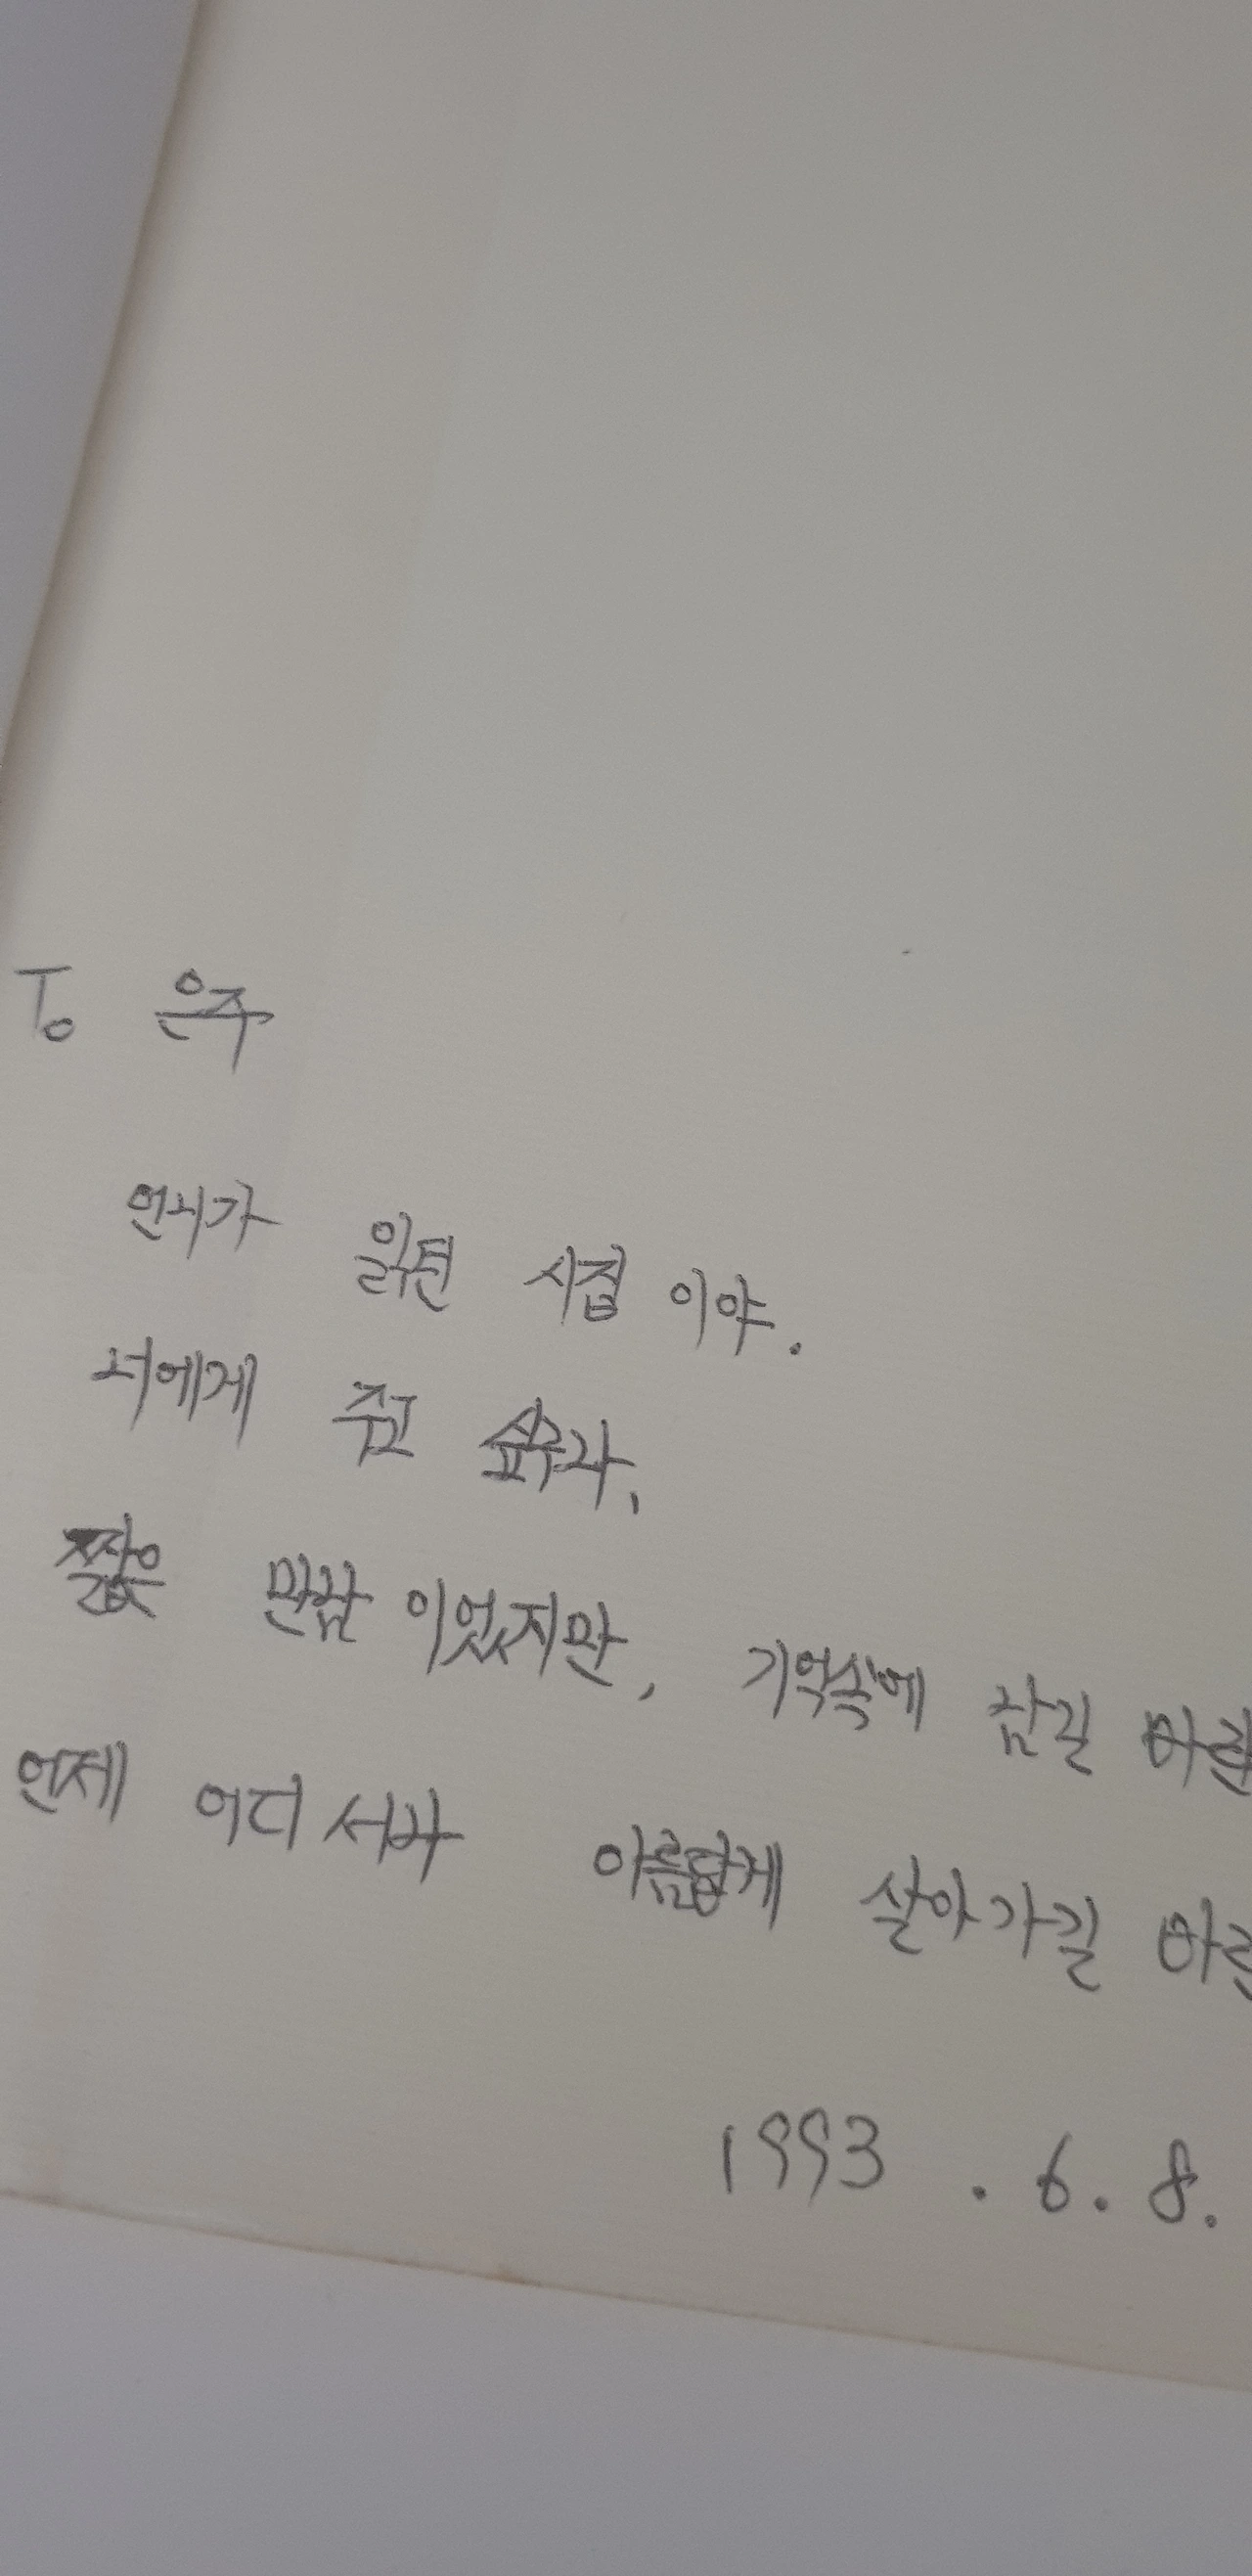 To 은주
언니가 읽던 시집 이야.
너에게 주고 싶구나.
짧은 만남 이었지만, 기억속에 남길
언제 어디 서나 아름답게 살아가길
1993 . 6. 8.